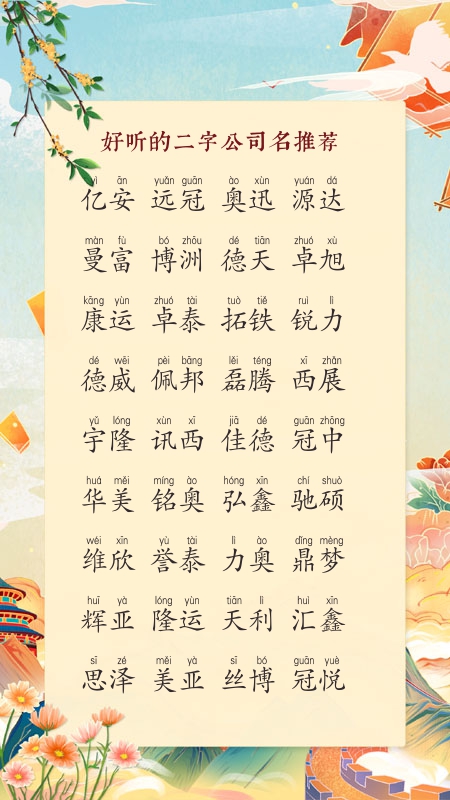 好听的二字公司名推荐
yì ān yuǎn guān ào xùn yuán dá
亿安 远冠 奥迅 源达
màn fù bó zhōu dé tiān zhuó xù
曼富 博洲 德天 卓旭
kāng yùn zhuó tài tuò tiě ruì lì
康运 卓泰 拓铁 锐力
dé wēi pèi bāng lěi téng xī zhǎn
德威 佩邦 磊腾 西展
yǔ lóng xùn xī jiā dé guān zhōng
宇隆 讯西 佳德 冠中
huá měi míng ào hóng xīn chí shuò
华美 铭奥 弘鑫 驰硕
wéi xīn yù tài lì ào dǐng mèng
维欣 誉泰 力奥 鼎梦
huī yà lóng yùn tiān lì huì xīn
辉亚 隆运 天利 汇鑫
sī zé měi yà sī bó guān yuè
思泽 美亚 丝博 冠悦